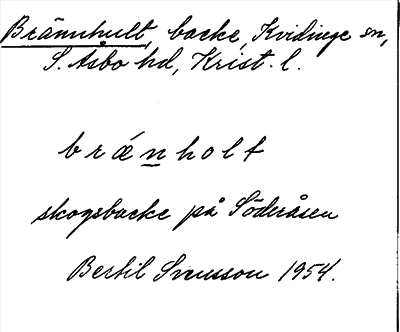 Brännhult, backe, Kvidinge sn,
S. Åsbo hd, Krist. l.
brǽnholt
skogsbacke på Söderåsen
Bertil Svensson 1954.